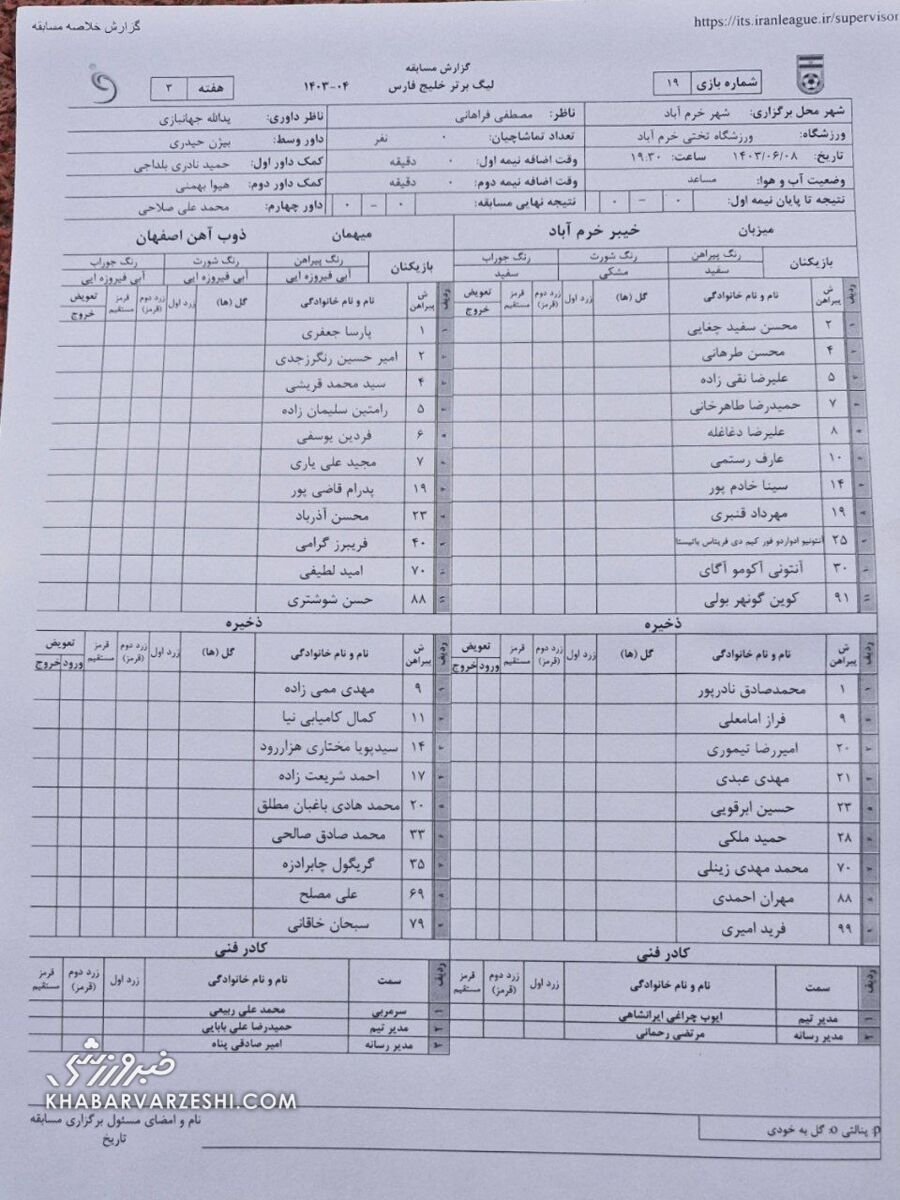 گزارش خلاصه مسابقه
https://its.iranleague.ir/supervisor
گزارش مسابقه
لیگ برتر خلیج فارس ۰۴-۱۴۰۳
شماره بازی ۱۹
هفته ۳
شهر محل برگزاری: شهر خرم آباد
ناظر: مصطفی فراهانی
ناظر داوری: یدالله جهانبازی
ورزشگاه: ورزشگاه تختی خرم آباد
تعداد تماشاچیان: ۰ نفر
داور وسط: بیژن حیدری
تاریخ: ۱۴۰۳/۰۶/۰۸ ساعت: ۱۹:۳۰
وقت اضافه نیمه اول: ۰ دقیقه
کمک داور اول: حمید نادری بلداجی
وضعیت آب و هوا: مساعد
وقت اضافه نیمه دوم: ۰ دقیقه
کمک داور دوم: هیوا بهمنی
نتیجه تا پایان نیمه اول: ۰ - ۰
نتیجه نهایی مسابقه: ۰ - ۰
داور چهارم: محمد علی صلاحی
میزبان خیبر خرم آباد
بازیکنان
رنگ پیراهن رنگ شورت رنگ جوراب
سفید مشکی سفید
ردیف ش پیراهن نام و نام خانوادگی گل (ها) زرد اول زرد دوم (قرمز) قرمز مستقیم تعویض خروج
۲ محسن سفید چغایی
۴ محسن طرهانی
۵ علیرضا نقی زاده
۷ حمیدرضا طاهرخانی
۸ علیرضا دغاغله
۱۰ عارف رستمی
۱۴ سینا خادم پور
۱۹ مهرداد قنبری
۲۵ آنتونیو ادواردو فور کیم دی فریتاس باتیستا
۳۰ آنتونی آکومو آگای
۱۱ ۹۱ کوین گونهر بولی
ذخیره
ردیف ش پیراهن نام و نام خانوادگی گل (ها) زرد اول زرد دوم (قرمز) قرمز مستقیم تعویض ورود خروج
۱ محمدصادق نادرپور
۹ فراز امامعلی
۲۰ امیررضا تیموری
۲۱ مهدی عبدی
۲۳ حسین ابرقویی
۲۸ حمید ملکی
۷۰ محمد مهدی زینلی
۸۸ مهران احمدی
۹۹ فرید امیری
کادر فنی
ردیف سمت نام و نام خانوادگی زرد اول زرد دوم (قرمز) قرمز مستقیم
۱ مدیر تیم ایوب چراغی ایرانشاهی
۲ مدیر رسانه مرتضی رحمانی
میهمان ذوب آهن اصفهان
بازیکنان
رنگ پیراهن رنگ شورت رنگ جوراب
آبی فیروزه ایی آبی فیروزه ایی آبی فیروزه ایی
ردیف ش پیراهن نام و نام خانوادگی گل (ها) زرد اول زرد دوم (قرمز) قرمز مستقیم تعویض خروج
۱ پارسا جعفری
۲ امیر حسین رنگرزجدی
۴ سید محمد قریشی
۵ رامتین سلیمان زاده
۶ فردین یوسفی
۷ مجید علی یاری
۱۹ پدرام قاضی پور
۲۳ محسن آذرباد
۴۰ فریبرز گرامی
۷۰ امید لطیفی
۱۱ ۸۸ حسن شوشتری
ذخیره
ردیف ش پیراهن نام و نام خانوادگی گل (ها) زرد اول زرد دوم (قرمز) قرمز مستقیم تعویض ورود خروج
۹ مهدی ممی زاده
۱۱ کمال کامیابی نیا
۱۴ سیدپویا مختاری هزاررود
۱۷ احمد شریعت زاده
۲۰ محمد هادی باغبان مطلق
۳۳ محمد صادق صالحی
۳۵ گریگول چابرادزه
۶۹ علی مصلح
۷۹ سبحان خاقانی
کادر فنی
ردیف سمت نام و نام خانوادگی زرد اول زرد دوم (قرمز) قرمز مستقیم
۱ سرمربی محمد علی ربیعی
۲ مدیر تیم حمیدرضا علی بابایی
۳ مدیر رسانه امیر صادقی پناه
خبرورزشی
KHABARVARZESHI.COM
p: پنالتی o: گل به خودی
نام و امضای مسئول برگزاری مسابقه
تاریخ